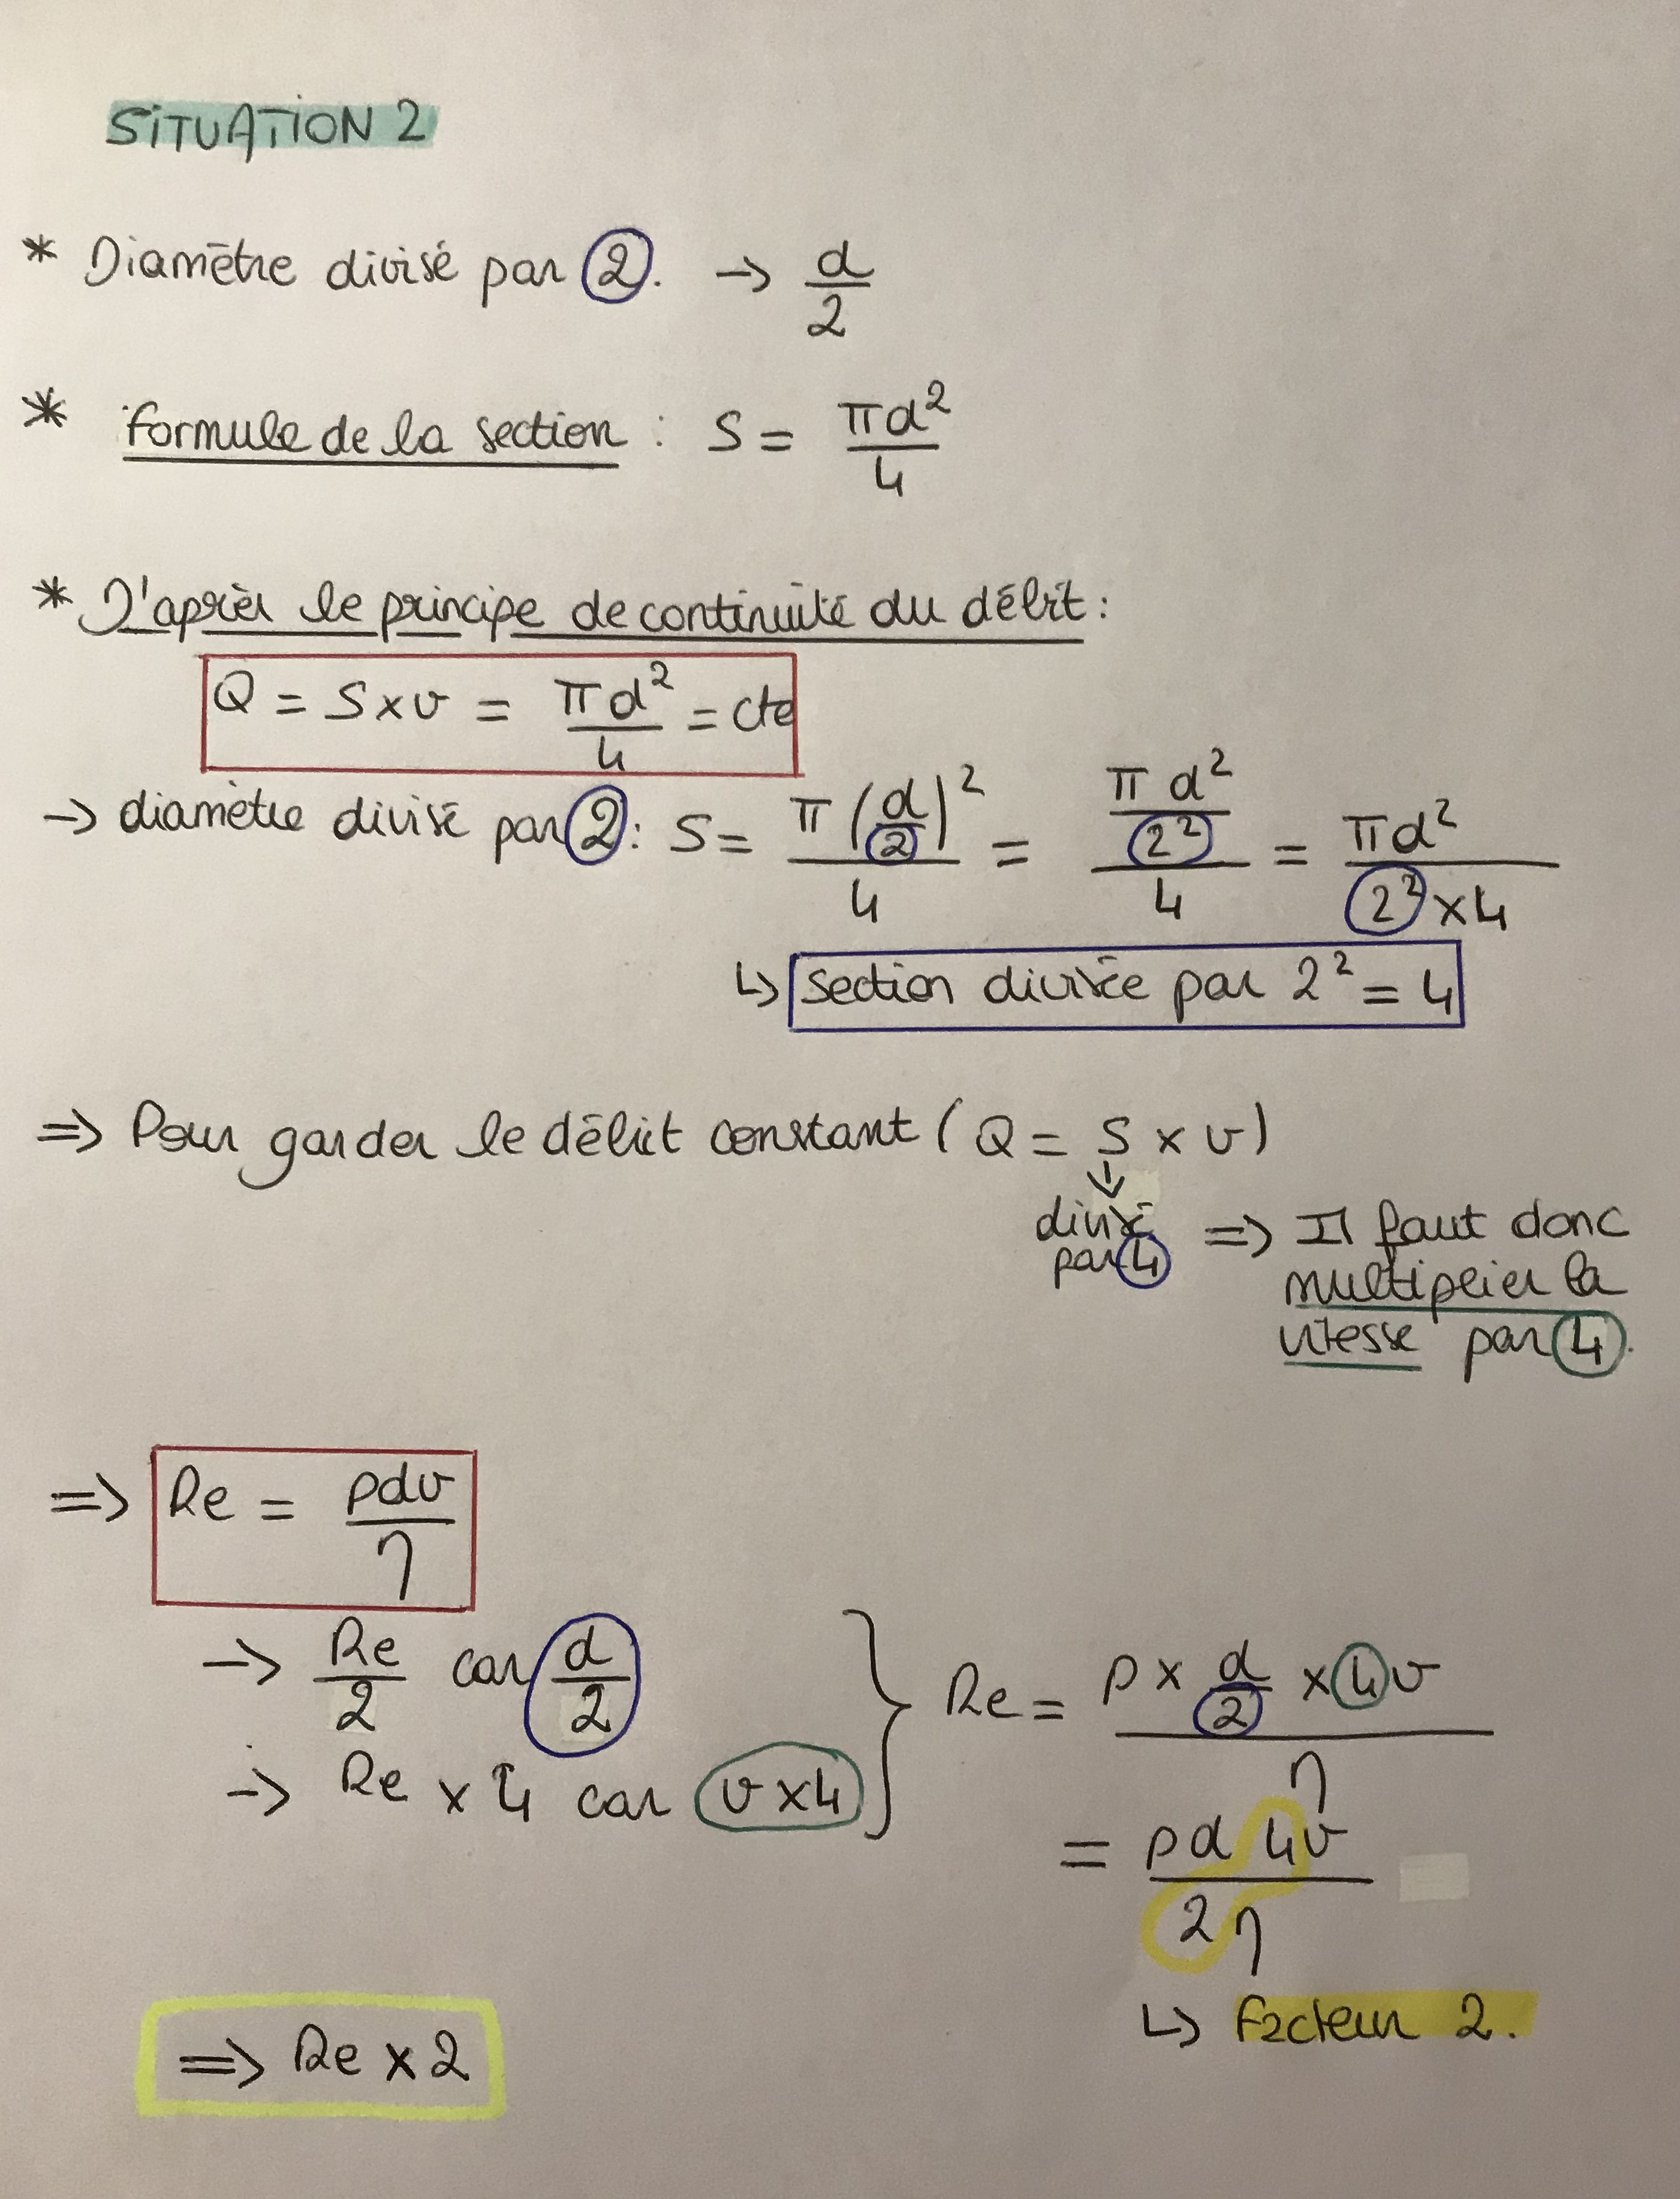 SITUATION 2
* Diamètre divisé par 2. → d/2
* formule de la section : S = πd²/4
* D'après le principe de continuité du débit :
Q = S x v = πd²/4 = cte
→ diamètre divisé par 2 : S = π(d/2)²/4 = (πd²/2²)/4 = πd²/(2² x 4)
↳ section divisée par 2² = 4
⇒ Pour garder le débit constant (Q = S x v)
↓
divisé par 4 ⇒ Il faut donc multiplier la vitesse par 4.
⇒ Re = ρdv/η
→ Re/2 car d/2
→ Re x 4 car v x 4
} Re = (ρ x d/2 x 4v)/η
= ρd4v/2η
↳ facteur 2.
⇒ Re x 2